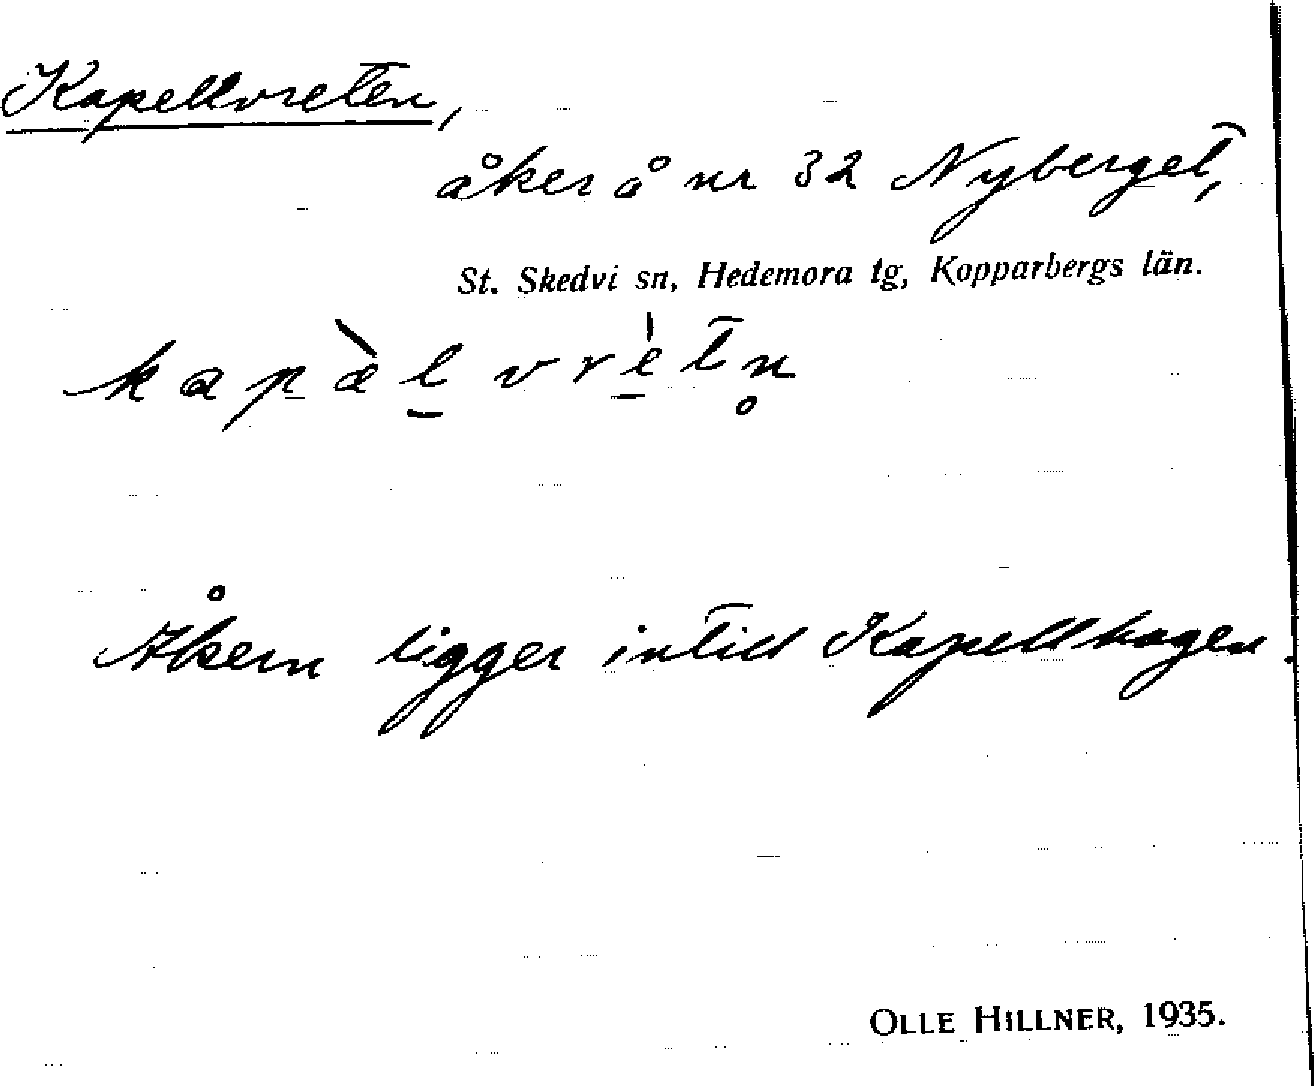 Kapellvreten,
åker å nr 32 Nyberget,
St. Skedvi sn, Hedemora tg, Kopparbergs län.
kapæ̀l̠vrè̠tn̥
Åkern ligger intill Kapellhagen.
OLLE HILLNER, 1935.